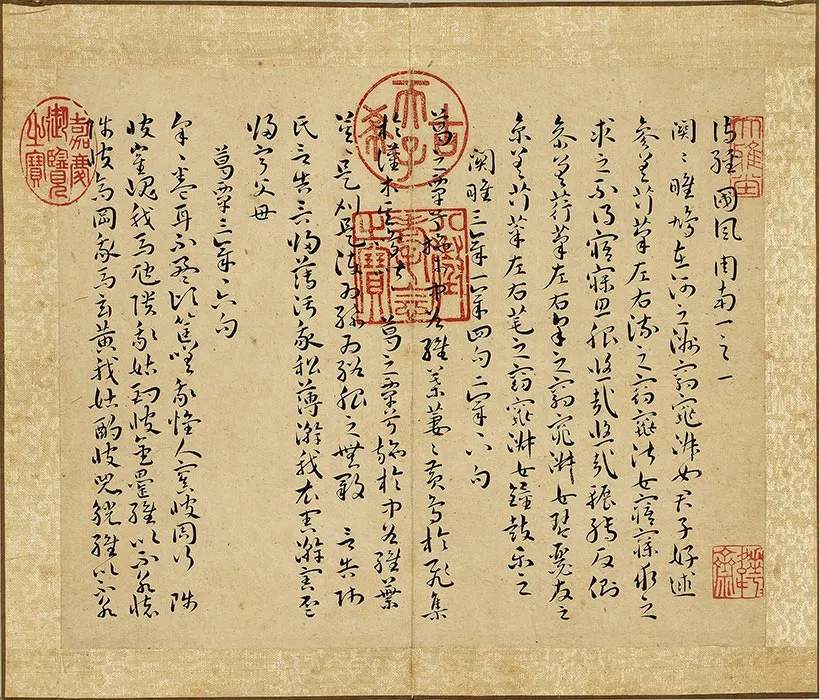 詩經國風周南一之一
關〻雎鳩在河之洲窈窕淑女君子好逑
參差荇菜左右流之窈窕淑女寤寐求之
求之不得寤寐思服悠哉悠哉輾轉反側
參差荇菜左右采之窈窕淑女琴瑟友之
參差荇菜左右芼之窈窕淑女鐘鼓樂之
關雎三章一章四句二章八句
葛之覃兮施于中谷維葉萋〻黃鳥於飛集
於灌木其鳴喈〻 葛之覃兮施於中谷維葉
莫〻是刈是濩為絺為綌服之無斁 言告師
氏言告言歸薄污我私薄澣我衣害澣害否
歸寧父母
葛覃三章〻六句
采〻卷耳不盈頃筐嗟我懷人寘彼周行 陟
彼崔嵬我馬虺隤我姑酌彼金罍維以不永懷
陟彼高岡我馬玄黃我姑酌彼兕觥維以不永
古希天子
嘉慶御覽之寶